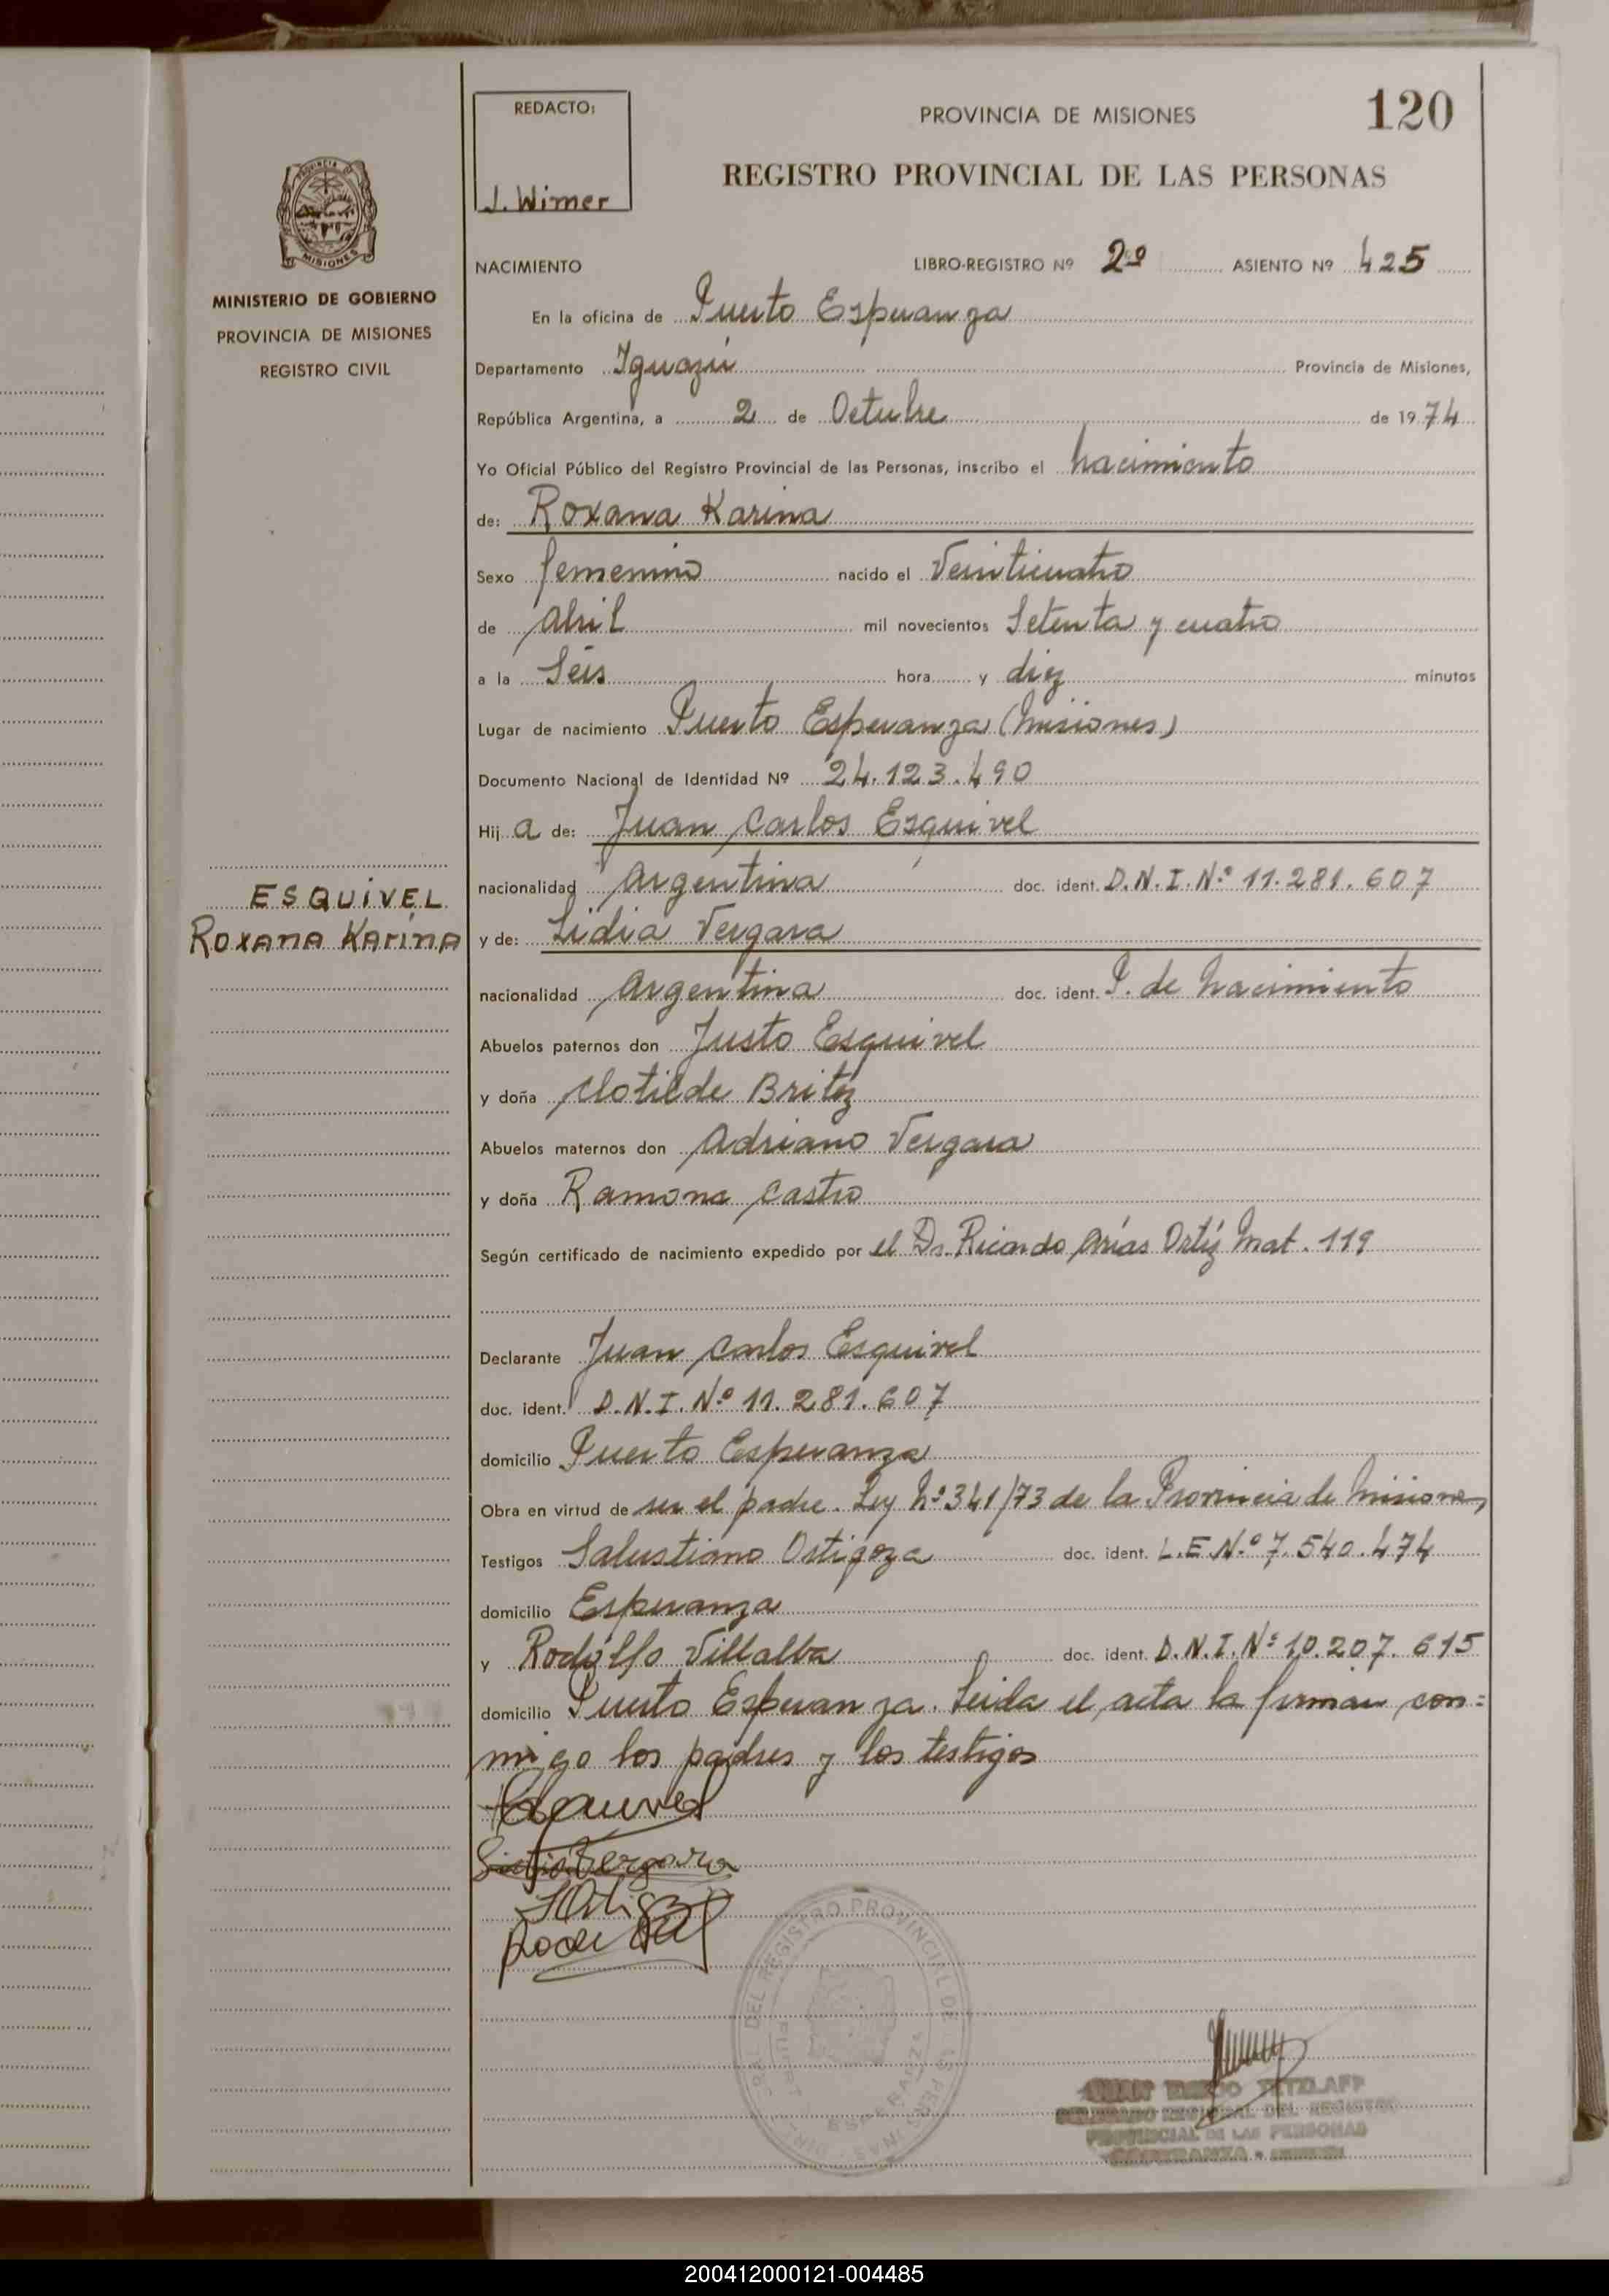 REDACTO:
J. Wimer
PROVINCIA DE MISIONES
120
REGISTRO PROVINCIAL DE LAS PERSONAS
PROVINCIA
MISIONES
MINISTERIO DE GOBIERNO
PROVINCIA DE MISIONES
REGISTRO CIVIL
NACIMIENTO LIBRO-REGISTRO Nº 2º ASIENTO Nº 425
En la oficina de Puerto Esperanza
Departamento Iguazú Provincia de Misiones,
República Argentina, a 2 de Octubre de 1974
Yo Oficial Público del Registro Provincial de las Personas, inscribo el nacimiento
de: Roxana Karina
Sexo femenino nacido el Veinticuatro
de abril mil novecientos Setenta y cuatro
a la Seis hora y diez minutos
Lugar de nacimiento Puerto Esperanza (Misiones)
Documento Nacional de Identidad Nº 24.123.490
Hija de: Juan Carlos Esquivel
nacionalidad Argentina doc. ident. D.N.I. Nº 11.281.607
ESQUIVEL
Roxana Karina
y de: Lidia Vergara
nacionalidad Argentina doc. ident. P. de nacimiento
Abuelos paternos don Justo Esquivel
y doña Clotilde Britez
Abuelos maternos don Adriano Vergara
y doña Ramona Castro
Según certificado de nacimiento expedido por el Dr. Ricardo Arías Ortíz Mat. 119
Declarante Juan Carlos Esquivel
doc. ident. D.N.I. Nº 11.281.607
domicilio Puerto Esperanza
Obra en virtud de ser el padre. Ley Nº 341/73 de la Provincia de Misiones
Testigos Salustiano Ortigoza doc. ident. L.E Nº 7.540.474
domicilio Esperanza
y Rodolfo Villalba doc. ident. D.N.I. Nº 10.207.615
domicilio Puerto Esperanza. Leida el acta la firman con=
migo los padres y los testigos
Esquivel
Lidia Vergara
DEL REGISTRO PROVINCIAL DE LAS PERSONAS
ESPERANZA
DELEGADO REGIONAL DEL REGISTRO
PROVINCIAL DE LAS PERSONAS
ESPERANZA - MISIONES
200412000121-004485